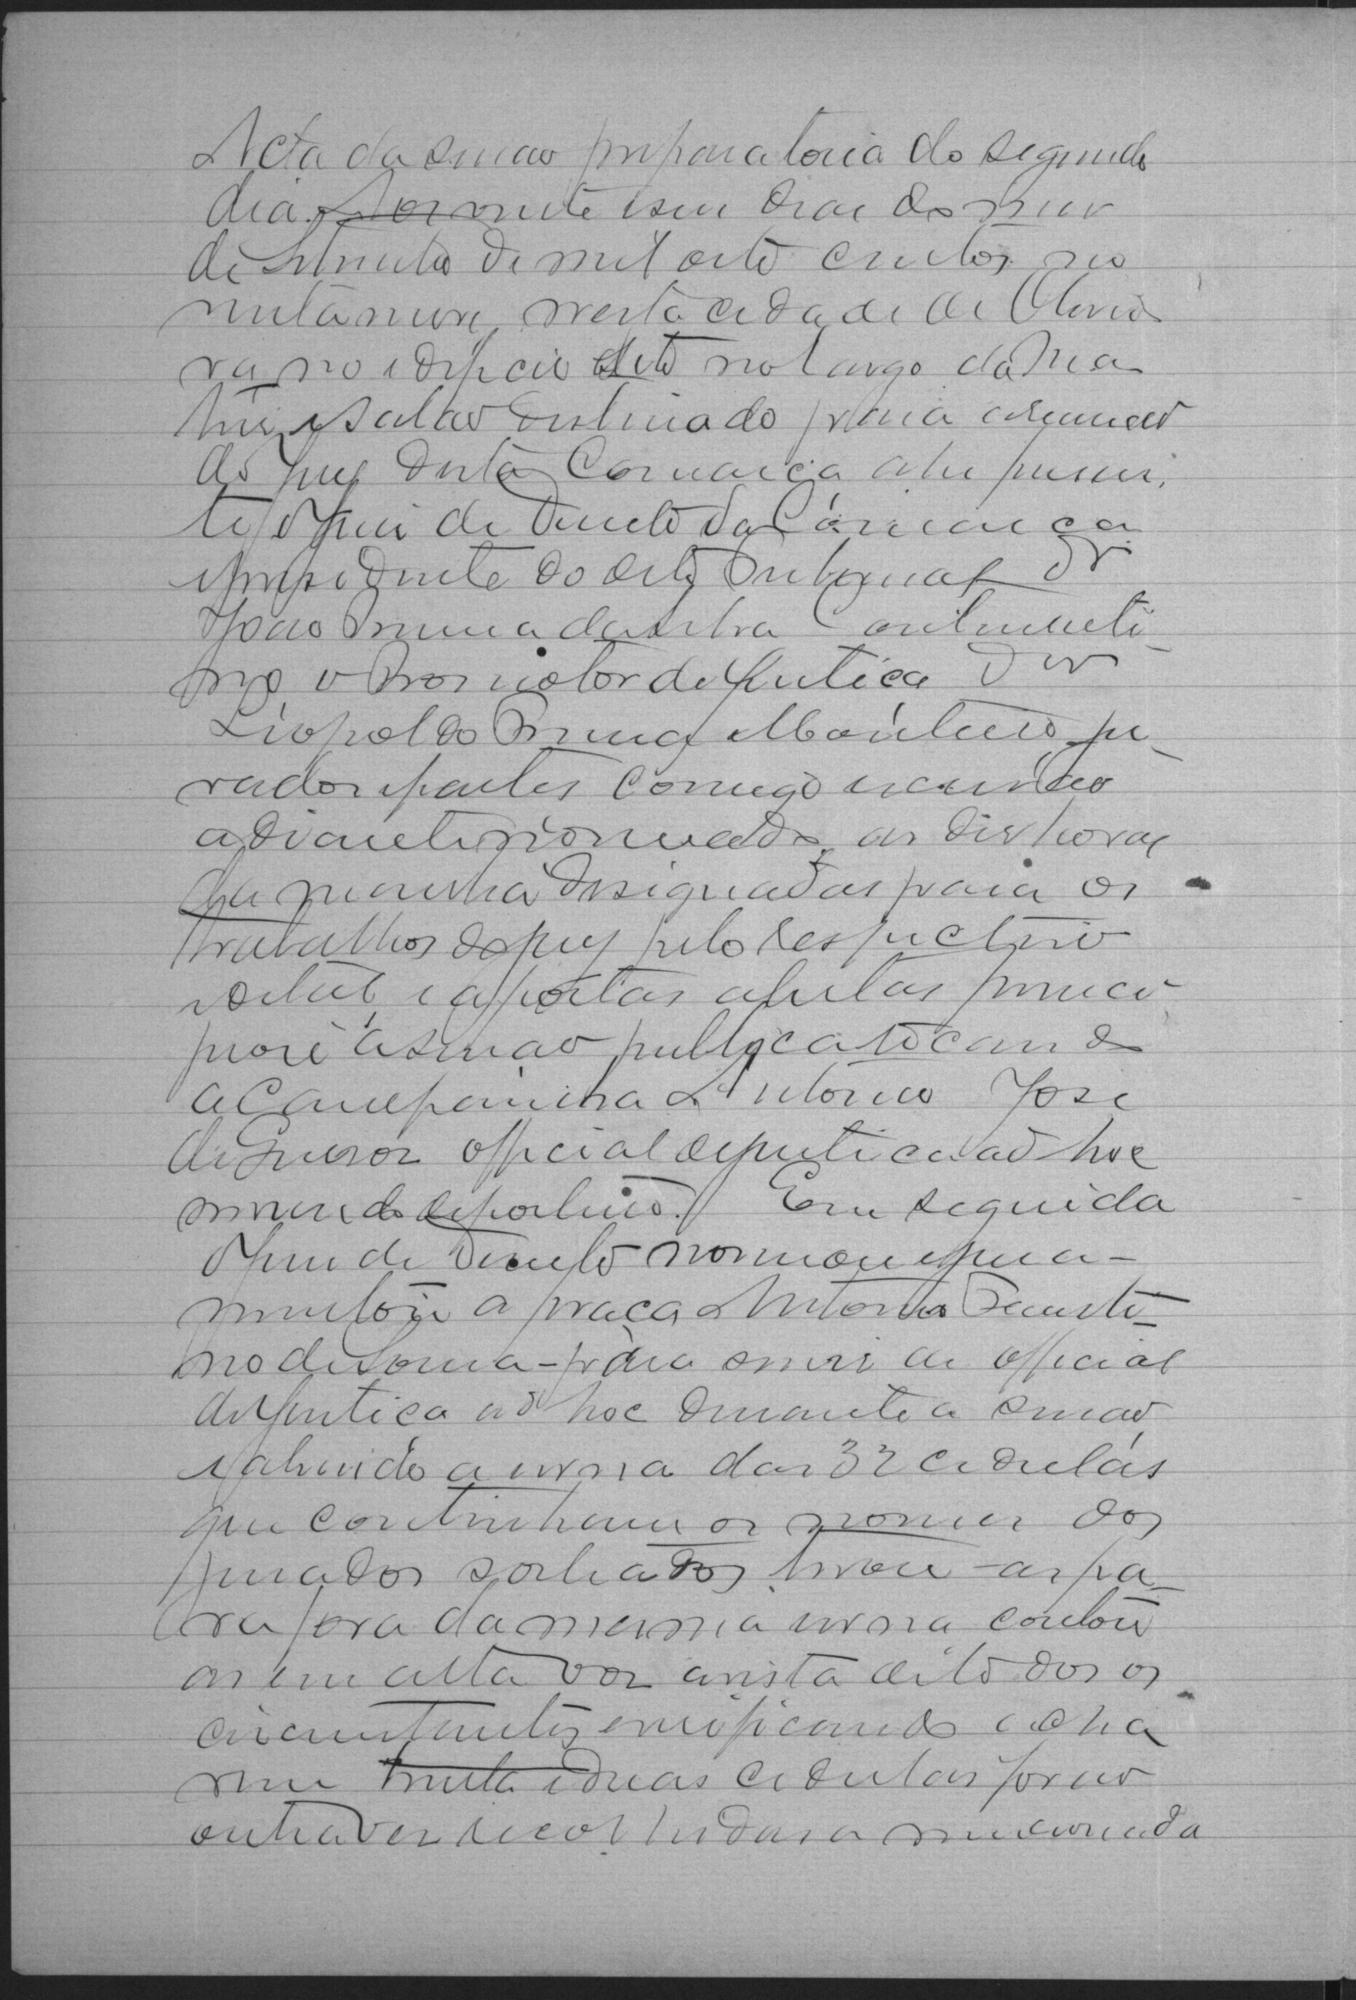 Acta da sessão preparatoria do segundo
dia. Aos vinte e seis dias do mez
de Setembro de mil oito centos no
nesta cidade de Olivei
ra no edificio sito no largo da Ma
triz e salão destinado para a reunião
do jury desta Comarca ahi presen
te o Juiz de Direito da Comarca
e presidente do dito Tribunal Dr
João Pereira da Silva Continenti
no o Promotor de Justiça Dor
Leopoldo Pereira Monteiro, ju
rados e partes comigo escrivão
adiante nomeado, as dez horas
da manhã designadas para os
trabalhos do jury pelo respectivo
edital, e a portas abertas princi
piou a sessão publica tocando
a Campainha Antonio José
de official de justiça ad hoc
servindo de porteiro. Em seguida
o Juiz de Direito nomeou e jura-
mentou a praça Antonio Fausti
no de Souza para servir de official
de Justiça ad hoc durante a sessão
e abrindo a urna das 32 cedulas
que continham os nomes dos
jurados sorteados tirou-as pa
ra fora da mesma urna contou
as em alta voz a vista de todos os
circunstantes e verificando acha
rem trinta e duas cedulas forão
outra vez recolhidas a mencionada